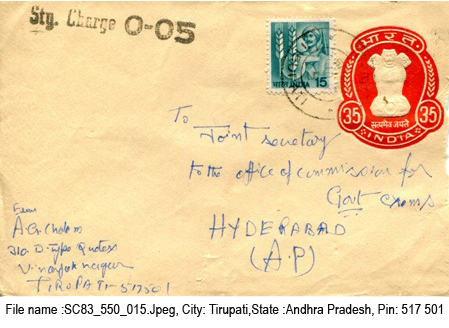 Stg. Charge 0-05
भारत INDIA 15
भारत
35 35
सत्यमेव जयते
INDIA
To
Joint secretary
to the office of commission for
Govt Exams
HYDERABAD
(A.P)
From
D-Type
Vinayak nagar
TIRUPATI-517501
File name :SC83_550_015.Jpeg, City: Tirupati,State :Andhra Pradesh, Pin: 517 501